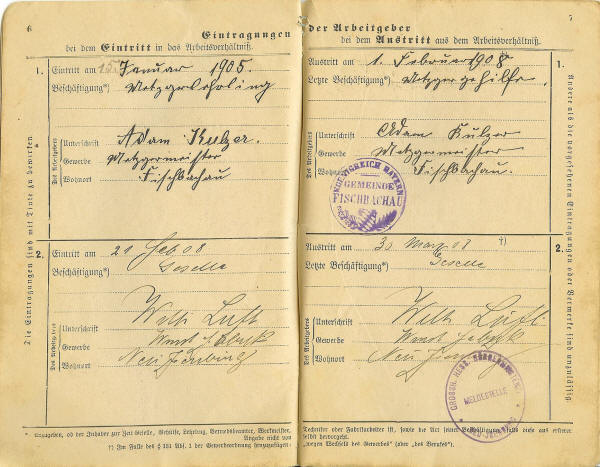 6
Eintragungen
bei dem Eintritt in das Arbeitsverhältniß.
1.
Eintritt am 15. Januar 1905.
Beschäftigung*) Metzgerlehrling
Des Arbeitgebers
Unterschrift Adam Kulzer.
Gewerbe Metzgermeister
Wohnort Fischbachau
2.
Eintritt am 20 Feb 08
Beschäftigung*) Geselle
Des Arbeitgebers
Unterschrift Wilh Luft
Gewerbe
Wohnort Neu
Die Eintragungen sind mit Tinte zu bewirken
*) Anzugeben, ob der Inhaber zur Zeit Geselle, Gehülfe, Lehrling, Betriebsbeamter, Werkmeister,
Angabe nicht von
†) Im Falle des § 131 Abs. 1 der Gewerbeordnung hinzuzufügen:
7
der Arbeitgeber
bei dem Austritt aus dem Arbeitsverhältniß.
1.
Austritt am 1. Februar 1908 †)
Letzte Beschäftigung*) Metzgergehilfe.
Des Arbeitgebers
Unterschrift Adam Kulzer
Gewerbe Metzgermeister
Wohnort Fischbachau.
KÖNIGREICH BAYERN
GEMEINDE
FISCHBACHAU
2.
Austritt am 30 März 08 †)
Letzte Beschäftigung*) Geselle
Des Arbeitgebers
Unterschrift Wilh Luft
Gewerbe
Wohnort Neu
GROSSH. HESS.
MELDESTELLE
Andere als die vorgesehenen Eintragungen oder Vermerke sind unzulässig
Techniker oder Fabrikarbeiter ist, sowie die Art seiner Beschäftigung, falls diese aus ersterer
selbst hervorgeht.
„wegen Wechsels des Gewerbes“ (oder „des Berufes“).